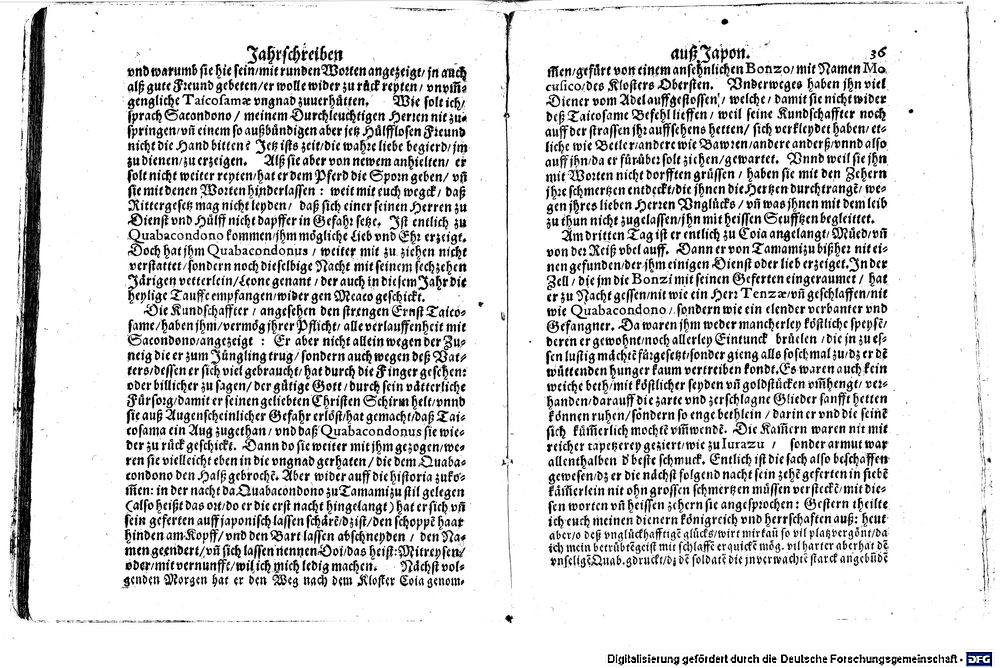 Jahrschreiben
vnd warumb sie hie sein/mit runden Worten angezeigt/jn auch
alß gute Freund gebeten/er wolle wider zu rück reyten/ vnvm̃-
gengliche Taicosamæ vngnad zuuerhütten. Wie solt ich/
sprach Sacondono / meinem Durchleuchtigen Herren nit zu-
springen/vñ einem so außbündigen aber jetz Hülfflosen Freund
nicht die Hand bitten? Jetz ists zeit/die wahre liebe begierd/jm
zu dienen/zu erzeigen. Alß sie aber von newem anhielten/ er
solt nicht weiter reyten/hat er dem Pferd die Sporn geben/ vñ
sie mit denen Worten hinderlassen : weit mit euch wegck/ daß
Rittergesetz mag nicht leyden/ daß sich einer seinen Herren zu
Dienst vnd Hülff nicht dapffer in Gefahr setze. Ist entlich zu
Quabacondono kommen/jhm mögliche Lieb vnd Ehr erzeigt.
Doch hat jhm Quabacondonus / weiter mit zu ziehen nicht
verstattet/sondern noch dieselbige Nacht mit seinem sechzehen
Järigen vetterlein/Leone genant / der auch in diesem Jahr die
heylige Tauffe empfangen/wider gen Meaco geschickt.
Die Kundschaffter / angesehen den strengen Ernst Taico-
same/haben jhm/vermög jhrer Pflicht/ alle verlauffenheit mit
Sacondono/angezeigt : Er aber nicht allein wegen der Zu-
neig die er zum Jüngling trug/ sondern auch wegen deß Vat-
ters/dessen er sich viel gebraucht/hat durch die Finger gesehen:
oder billicher zu sagen/ der gütige Gott / durch sein vätterliche
Fürsorg/damit er seinen geliebten Christen Schirm helt/vnnd
sie auß Augenscheinlicher Gefahr erlöst/hat gemacht/daß Tai-
cosama ein Aug zugethan / vnd daß Quabacondonus sie wie-
der zu rück geschickt. Dann do sie weiter mit jhm gezogen/we-
ren sie vielleicht eben in die vngnad gerhaten / die dem Quaba-
condono den Halß gebrochẽ. Aber wider auff die historia zuko-
m̃en: in der nacht da Quabacondono zu Tamamizu stil gelegen
(also heißt das ort/do er die erst nacht hingelangt) hat er sich vñ
sein geferten auff japonisch lassen schärẽ/dz ist/den schoppẽ haar
hinden am Kopff/ vnd den Bart lassen abschneyden / den Na-
men geendert/vñ sich lassen nennen Doi/das heist: Mitreysen/
oder/mit vernunfft/wil ich mich ledig machen. Nächst vol-
genden Morgen hat er den Weg nach dem Kloster Coia genom-
auß Japon. 36
m̃en/gefürt von einem ansehnlichen Bonzo/mit Namen Mo
culico/des Klosters Obersten. Vnderweges haben jhn viel
Diener vom Adel auffgestossen / welche / damit sie nicht wider
deß Taicosame Befehl lieffen / weil seine Kundschaffter noch
auff der strassen jhr auffsehens hetten/ sich verkleydet haben/et-
liche wie Betler/andere wie Bawren/andere anderß/vnnd also
auff jhn/da er fürüber solt ziehen/gewartet. Vnnd weil sie jhn
mit Worten nicht dorfften grüssen / haben sie mit den Zehern
jhre schmertzen entdeckt/die jhnen die Hertzen durchtrangẽ/we-
gen jhres lieben Herren Vnglücks / vñ was jhnen mit dem leib
zu thun nicht zugelassen/jhn mit heissen Seufftzen begleittet.
Am dritten Tag ist er entlich zu Coia angelangt/ Müed/vñ
von der Reiß vbel auff. Dann er von Tamamizu bißher nit ei-
nen gefunden/der jhm einigen Dienst oder lieb erzeiget. In der
Zell / die jm die Bonzi mit seinen Geferten eingeraumet / hat
er zu Nacht gessen/nit wie ein Herr Tenzæ/vñ geschlaffen/nit
wie Quabacondono / sondern wie ein elender verbanter vnd
Gefangner. Da waren jhm weder mancherley köstliche speysẽ/
deren er gewohnt/noch allerley Eintunck brüelen / die jn zu es-
sen lustig mächtẽ fürgesetzt/sonder gieng alls so schmal zu/dz er dẽ
wüttenden hunger kaum vertreiben kondt. Es waren auch kein
weiche beth/mit köstlicher seyden vñ goldstücken vm̃hengt/ ver-
handen/darauff die zarte vnd zerschlagne Glieder sanfft hetten
können ruhen/ sondern so enge bethlein / darin er vnd die seinẽ
sich küm̃erlich mochtẽ vm̃wendẽ. Die Kam̃ern waren nit mit
reicher tapetzerey geziert/wie zu Iurazu / sonder armut war
allenthalben d' beste schmuck. Entlich ist die sach also beschaffen
gewesen/dz er die nächst folgend nacht sein zehẽ geferten in siebẽ
kam̃erlein nit ohn grossen schmertzen müssen versteckẽ/mit die-
sen worten vñ heissen zehern sie angesprochen: Gestern theilte
ich euch meinen dienern königreich vnd herrschaften auß: heut
aber/o deß vnglückhafftigẽ glücks/wirt mir kaũ so vil platz vergönt/da
ich mein betrübtẽ geist mit schlaffẽ erquickẽ mög. vil harter aber hat dẽ
vnseligẽ Quab. gdruckt/dz dẽ soldatẽ die jn verwachtẽ starck angebũdẽ
Digitalisierung gefördert durch die Deutsche Forschungsgemeinschaft - DFG